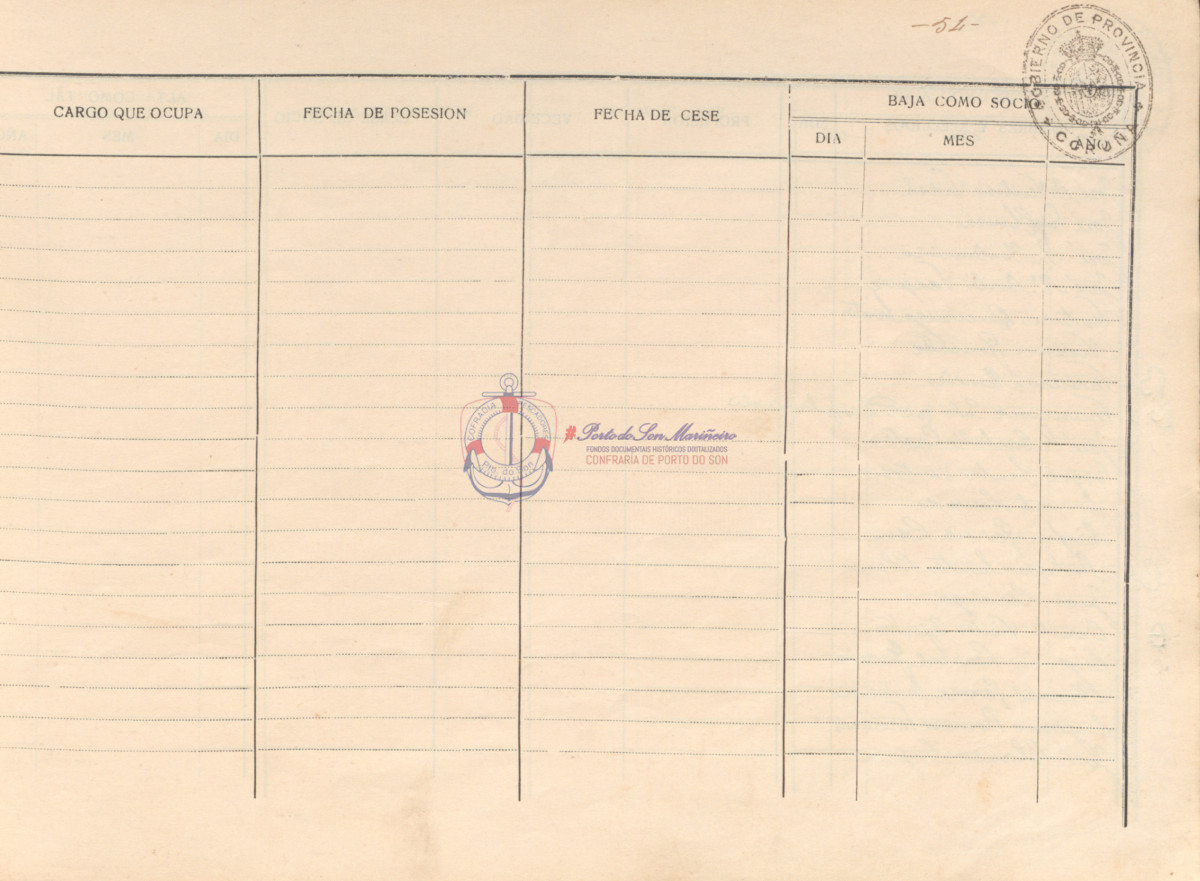 -54-
GOBIERNO DE PROVINCIA
CORUÑA
CARGO QUE OCUPA
FECHA DE POSESION
FECHA DE CESE
BAJA COMO SOCIO
DIA
MES
AÑO
COFRADIA PESCADORES
Pto. do Son
#Porto do Son Mariñeiro
FONDOS DOCUMENTAIS HISTÓRICOS DIXITALIZADOS
CONFRARÍA DE PORTO DO SON